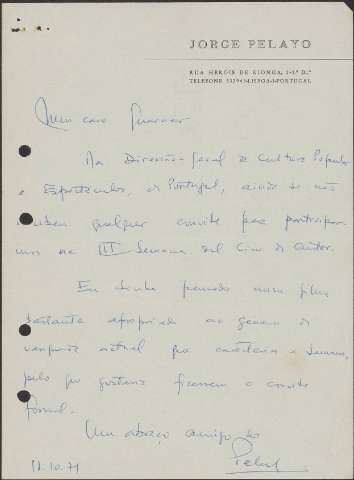 JORGE PELAYO
RUA HEROIS DE KIONGA,
TELEFONE LISBOA-1-PORTUGAL
Meu caro
Na Direcção-Geral de Cultura Popular
e Espectáculos, de Portugal, ainda se não
qualquer convite para participar
mos na III Semana del Cine de Autor.
Eu tenho pensado num filme
bastante apropriado ao género de
actual que caracteriza a Semana,
pelo que gostaria fizessem o convite
formal.
Um abraço amigo do
Pelayo
11.10.71